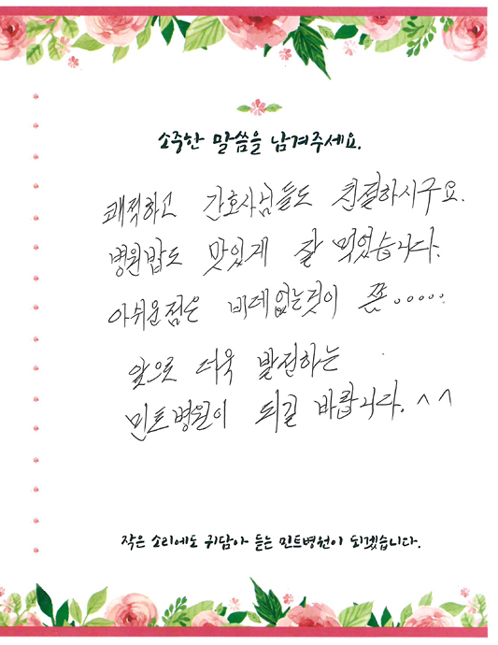 소중한 말씀을 남겨주세요.
쾌적하고 간호사님들도 친절하시구요.
병원밥도 맛있게 잘 먹었습니다.
아쉬운점은 비데없는것이 쫌.....
앞으로 더욱 발전하는
민트병원이 되길 바랍니다. ^^
작은 소리에도 귀담아 듣는 민트병원이 되겠습니다.